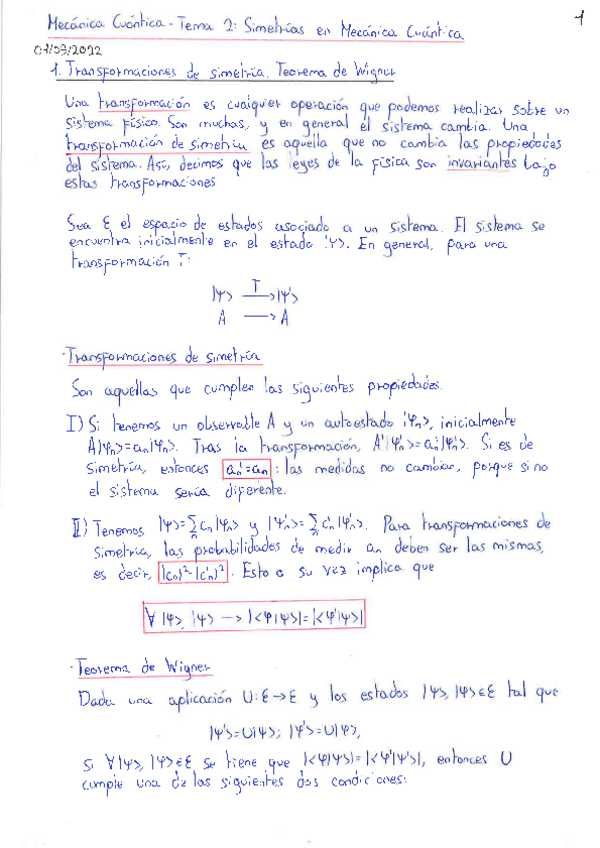 1
Mecánica Cuántica - Tema 2: Simetrías en Mecánica Cuántica
01/03/2022
1. Transformaciones de simetría. Teorema de Wigner
Una transformación es cualquier operación que podemos realizar sobre un
sistema físico. Son muchas, y en general el sistema cambia. Una
transformación de simetría es aquella que no cambia las propiedades
del sistema. Así, decimos que las leyes de la física son invariantes bajo
estas transformaciones
Sea Ɛ el espacio de estados asociado a un sistema. El sistema se
encuentra inicialmente en el estado |Ψ>. En general, para una
transformación T:
|Ψ> —T→ |Ψ'>
A ⟶ A
· Transformaciones de simetría
Son aquellas que cumplen las siguientes propiedades.
I) Si tenemos un observable A y un autoestado |φn>, inicialmente
A|φn>=an|φn>. Tras la transformación, A'|φ'n>=a'n|φ'n>. Si es de
simetría, entonces a'n=an: las medidas no cambian, porque si no
el sistema sería diferente.
II) Tenemos |Ψ>=∑n cn|φn> y |Ψ'>=∑n c'n|φ'n>. Para transformaciones de
simetría, las probabilidades de medir an deben ser las mismas,
es decir, |cn|²=|c'n|². Esto a su vez implica que
∀ |φ>, |Ψ> —> |<φ|Ψ>|=|<φ'|Ψ'>|
· Teorema de Wigner
Dada una aplicación U: Ɛ→Ɛ y los estados |Ψ>, |φ>∈Ɛ tal que
|Ψ'>=U|Ψ>; |φ'>=U|φ>,
Si ∀|Ψ>, |φ>∈Ɛ se tiene que |<φ|Ψ>|=|<φ'|Ψ'>|, entonces U
cumple una de las siguientes dos condiciones: